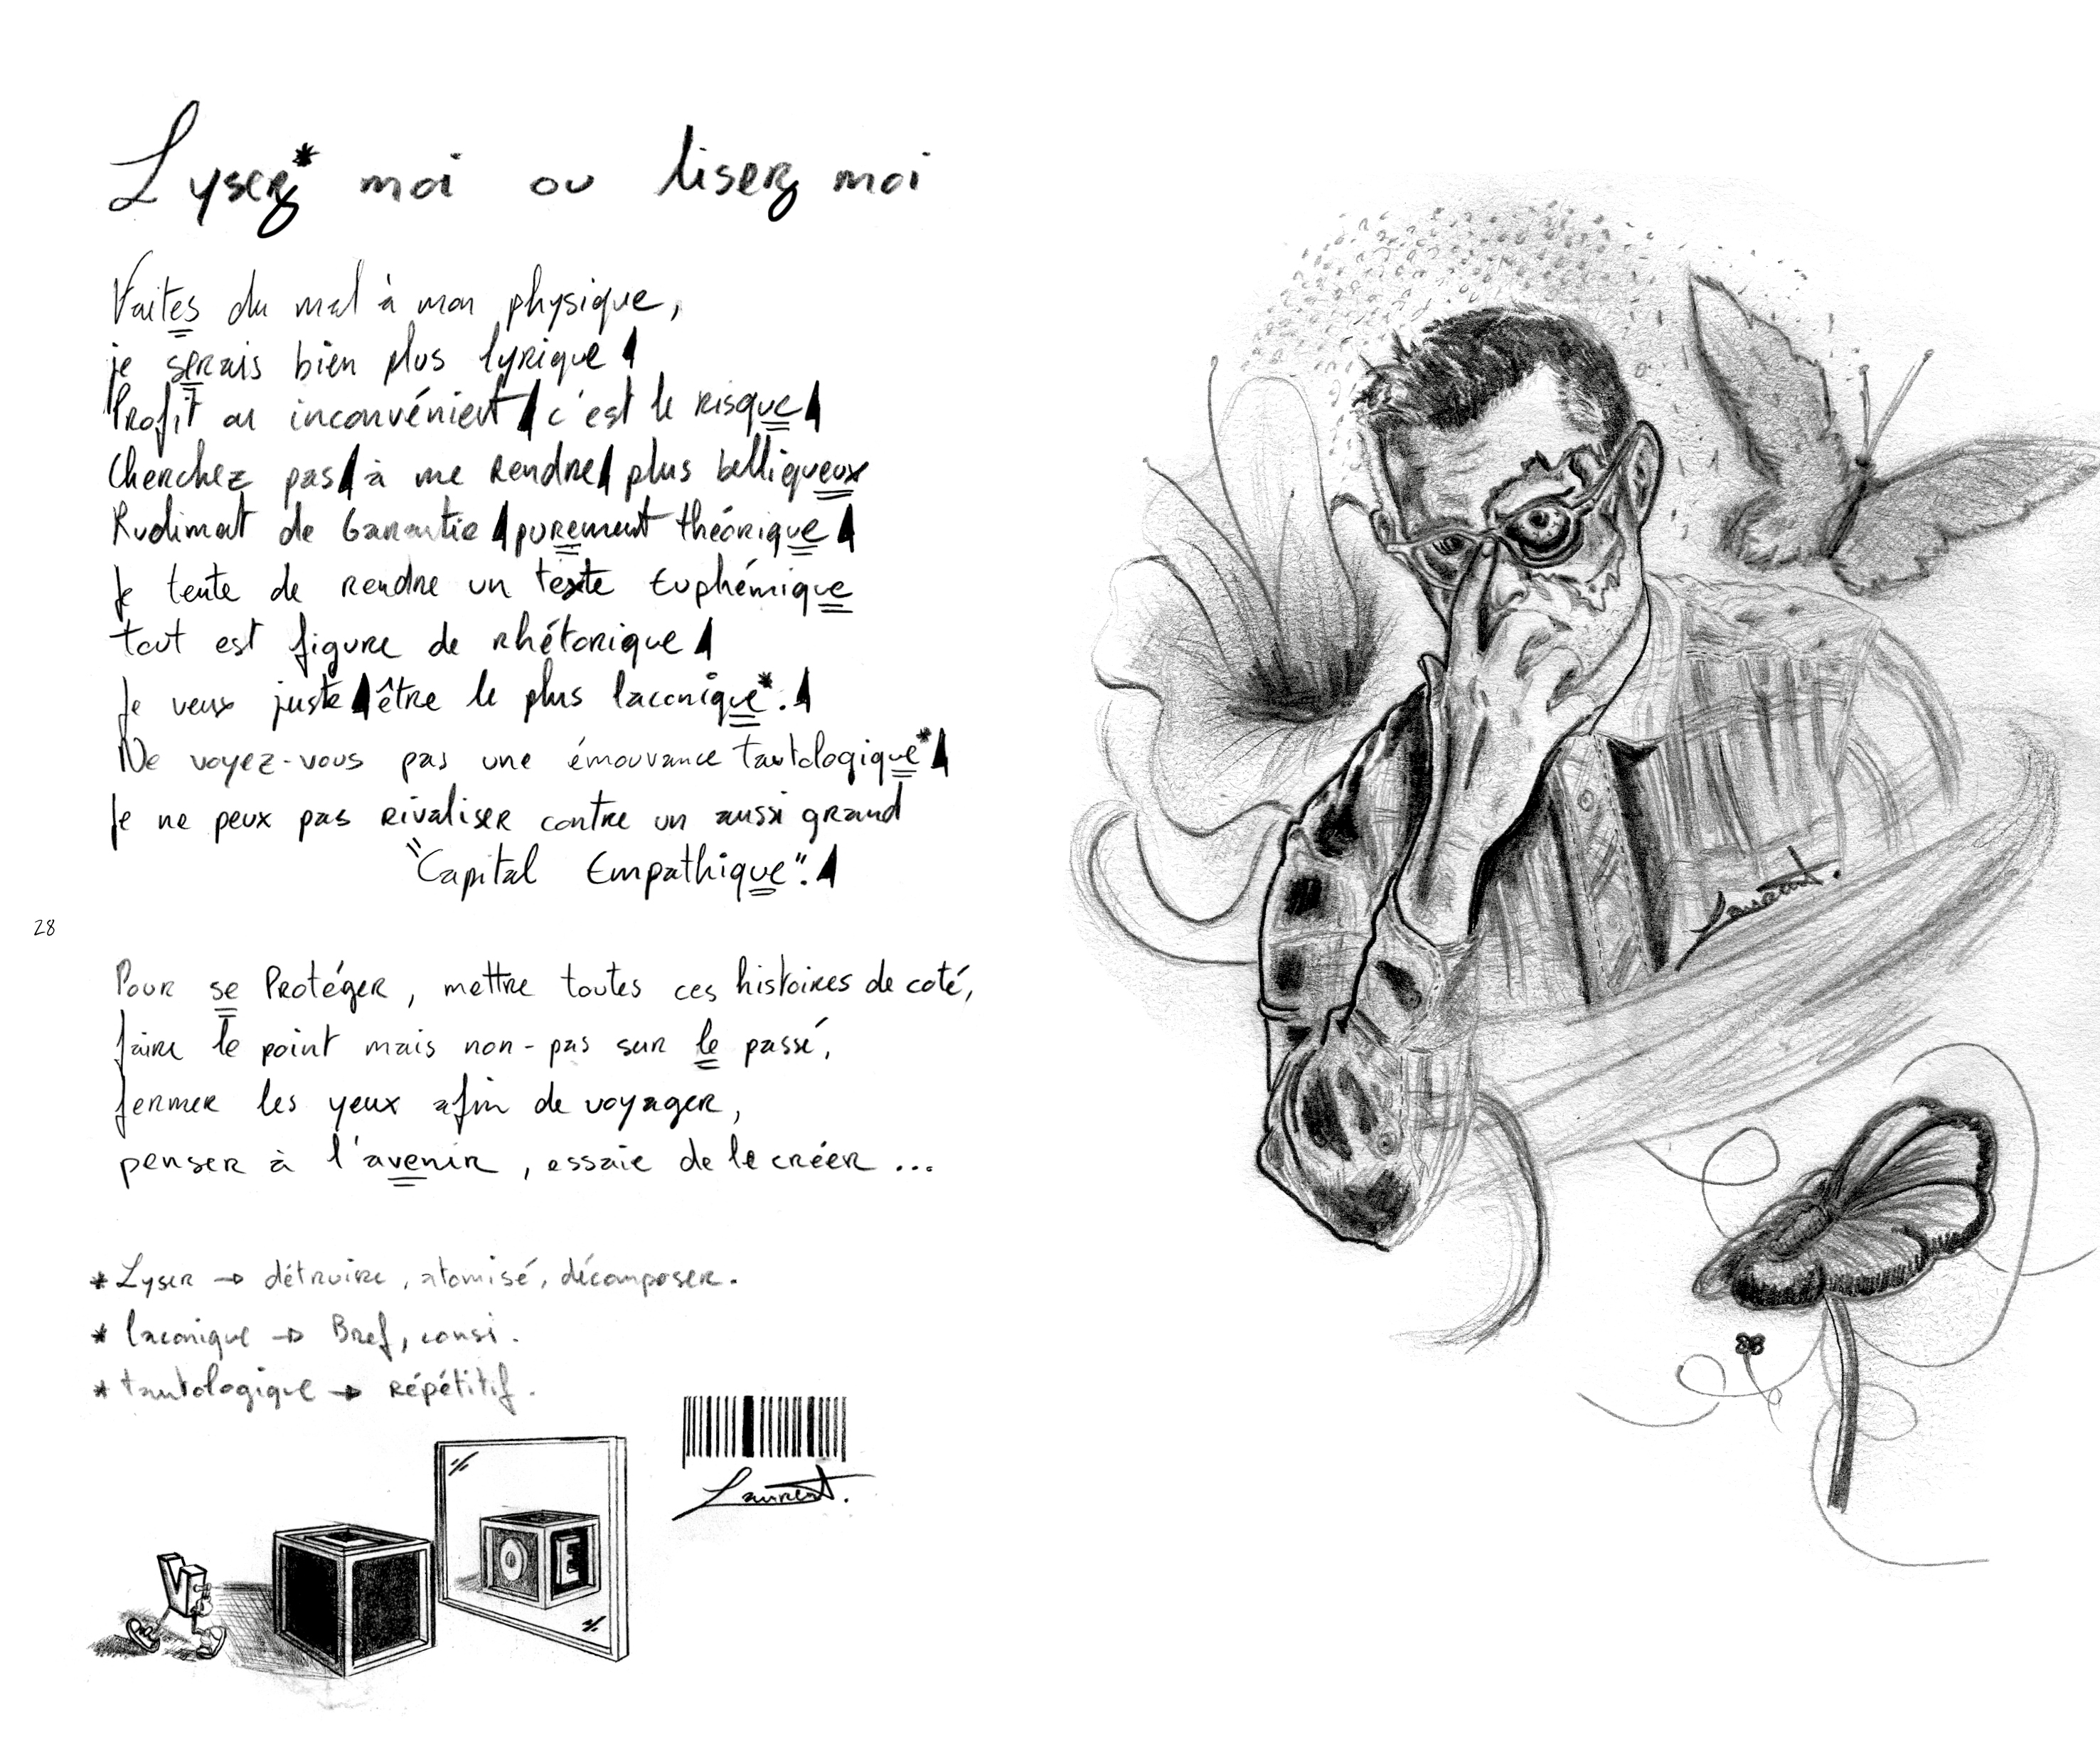 Lysez* moi ou lisez moi
Faites du mal à mon physique,
je serais bien plus lyrique
Profit ou inconvénient c'est le risque
Cherchez pas à me rendre plus belliqueux
Rudiment de Garantie purement théorique
Je tente de rendre un texte Euphémique
tout est figure de rhétorique
Je veux juste être le plus laconique*.
Ne voyez-vous pas une émouvance tautologique*
Je ne peux pas rivaliser contre un aussi grand
"Capital Empathique".
28
Pour se Protéger, mettre toutes ces histoires de coté,
faire le point mais non-pas sur le passé,
fermer les yeux afin de voyager,
penser à l'avenir, essaie de le créer ...
* Lyser → détruire, atomisé, décomposer.
* laconique → Bref, consi.
* tautologique → répétitif.
Laurent.
V
O E
Laurent.